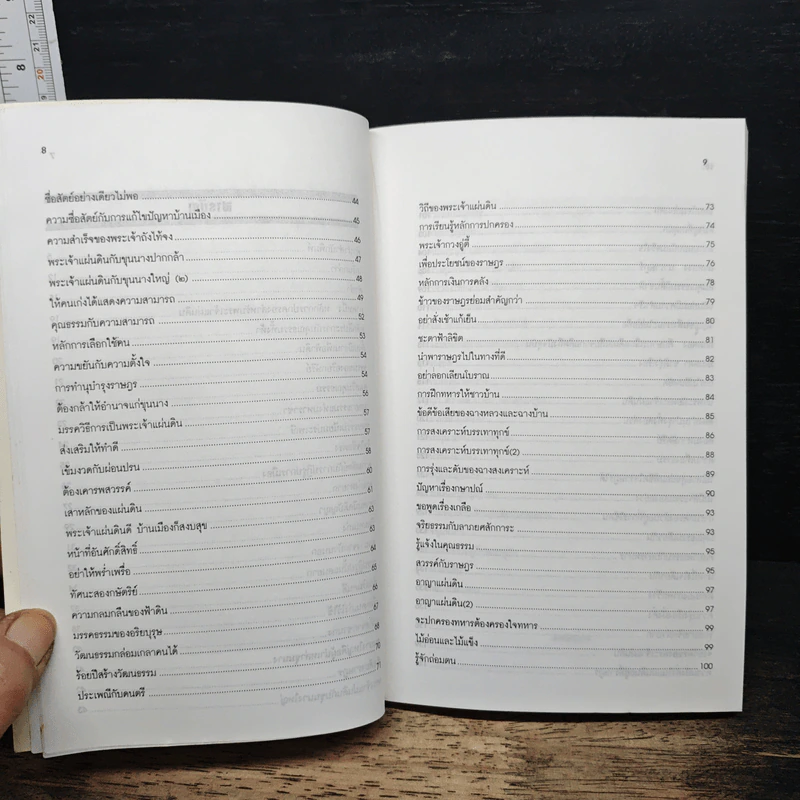 8
ซื่อสัตย์อย่างเดียวไม่พอ 44
ความซื่อสัตย์กับการแก้ไขปัญหาบ้านเมือง 45
ความสำเร็จของพระเจ้าถังไท้จง 46
พระเจ้าแผ่นดินกับขุนนางปากกล้า 47
พระเจ้าแผ่นดินกับขุนนางใหญ่ (๒) 48
ให้คนเก่งได้แสดงความสามารถ 49
คุณธรรมกับความสามารถ 52
หลักการเลือกใช้คน 53
ความขยันกับความตั้งใจ 54
การทำนุบำรุงราษฎร 54
ต้องกล้าให้อำนาจแก่ขุนนาง 56
มรรควิธีการเป็นพระเจ้าแผ่นดิน 57
ส่งเสริมให้ทำดี 57
เข้มงวดกับผ่อนปรน 58
ต้องเคารพสวรรค์ 60
เสาหลักของแผ่นดิน 61
พระเจ้าแผ่นดินดี บ้านเมืองก็สงบสุข 63
หน้าที่อันศักดิ์สิทธิ์ 63
อย่าให้พร่ำเพรื่อ 64
ทัศนะสองกษัตริย์ 66
ความกลมกลืนของฟ้าดิน 66
มรรคธรรมของอริยบุรุษ 67
วัฒนธรรมกล่อมเกลาคนได้ 68
ร้อยปีสร้างวัฒนธรรม 70
ประเพณีกับดนตรี 71
9
วิถีของพระเจ้าแผ่นดิน 73
การเรียนรู้หลักการปกครอง 74
พระเจ้ากวงอู่ตี้ 75
เพื่อประโยชน์ของราษฎร 76
หลักการเงินการคลัง 78
ข้าวของราษฎรย่อมสำคัญกว่า 79
อย่าสั่งเช้าแก้เย็น 80
ชะตาฟ้าลิขิต 81
นำพาราษฎรไปในทางที่ดี 82
อย่าลอกเลียนโบราณ 83
การฝึกทหารให้ชาวบ้าน 84
ข้อดีข้อเสียของฉางหลวงและฉางบ้าน 85
การสงเคราะห์บรรเทาทุกข์ 86
การสงเคราะห์บรรเทาทุกข์(2) 88
การรุ่งและดับของฉางสงเคราะห์ 89
ปัญหาเรื่องกษาปณ์ 90
ขอพูดเรื่องเกลือ 93
จริยธรรมกับลาภยศสักการะ 93
รู้แจ้งในคุณธรรม 95
สวรรค์กับราษฎร 95
อาญาแผ่นดิน 97
อาญาแผ่นดิน(2) 97
จะปกครองทหารต้องครองใจทหาร 99
ไม้อ่อนและไม้แข็ง 99
รู้จักถ่อมตน 100